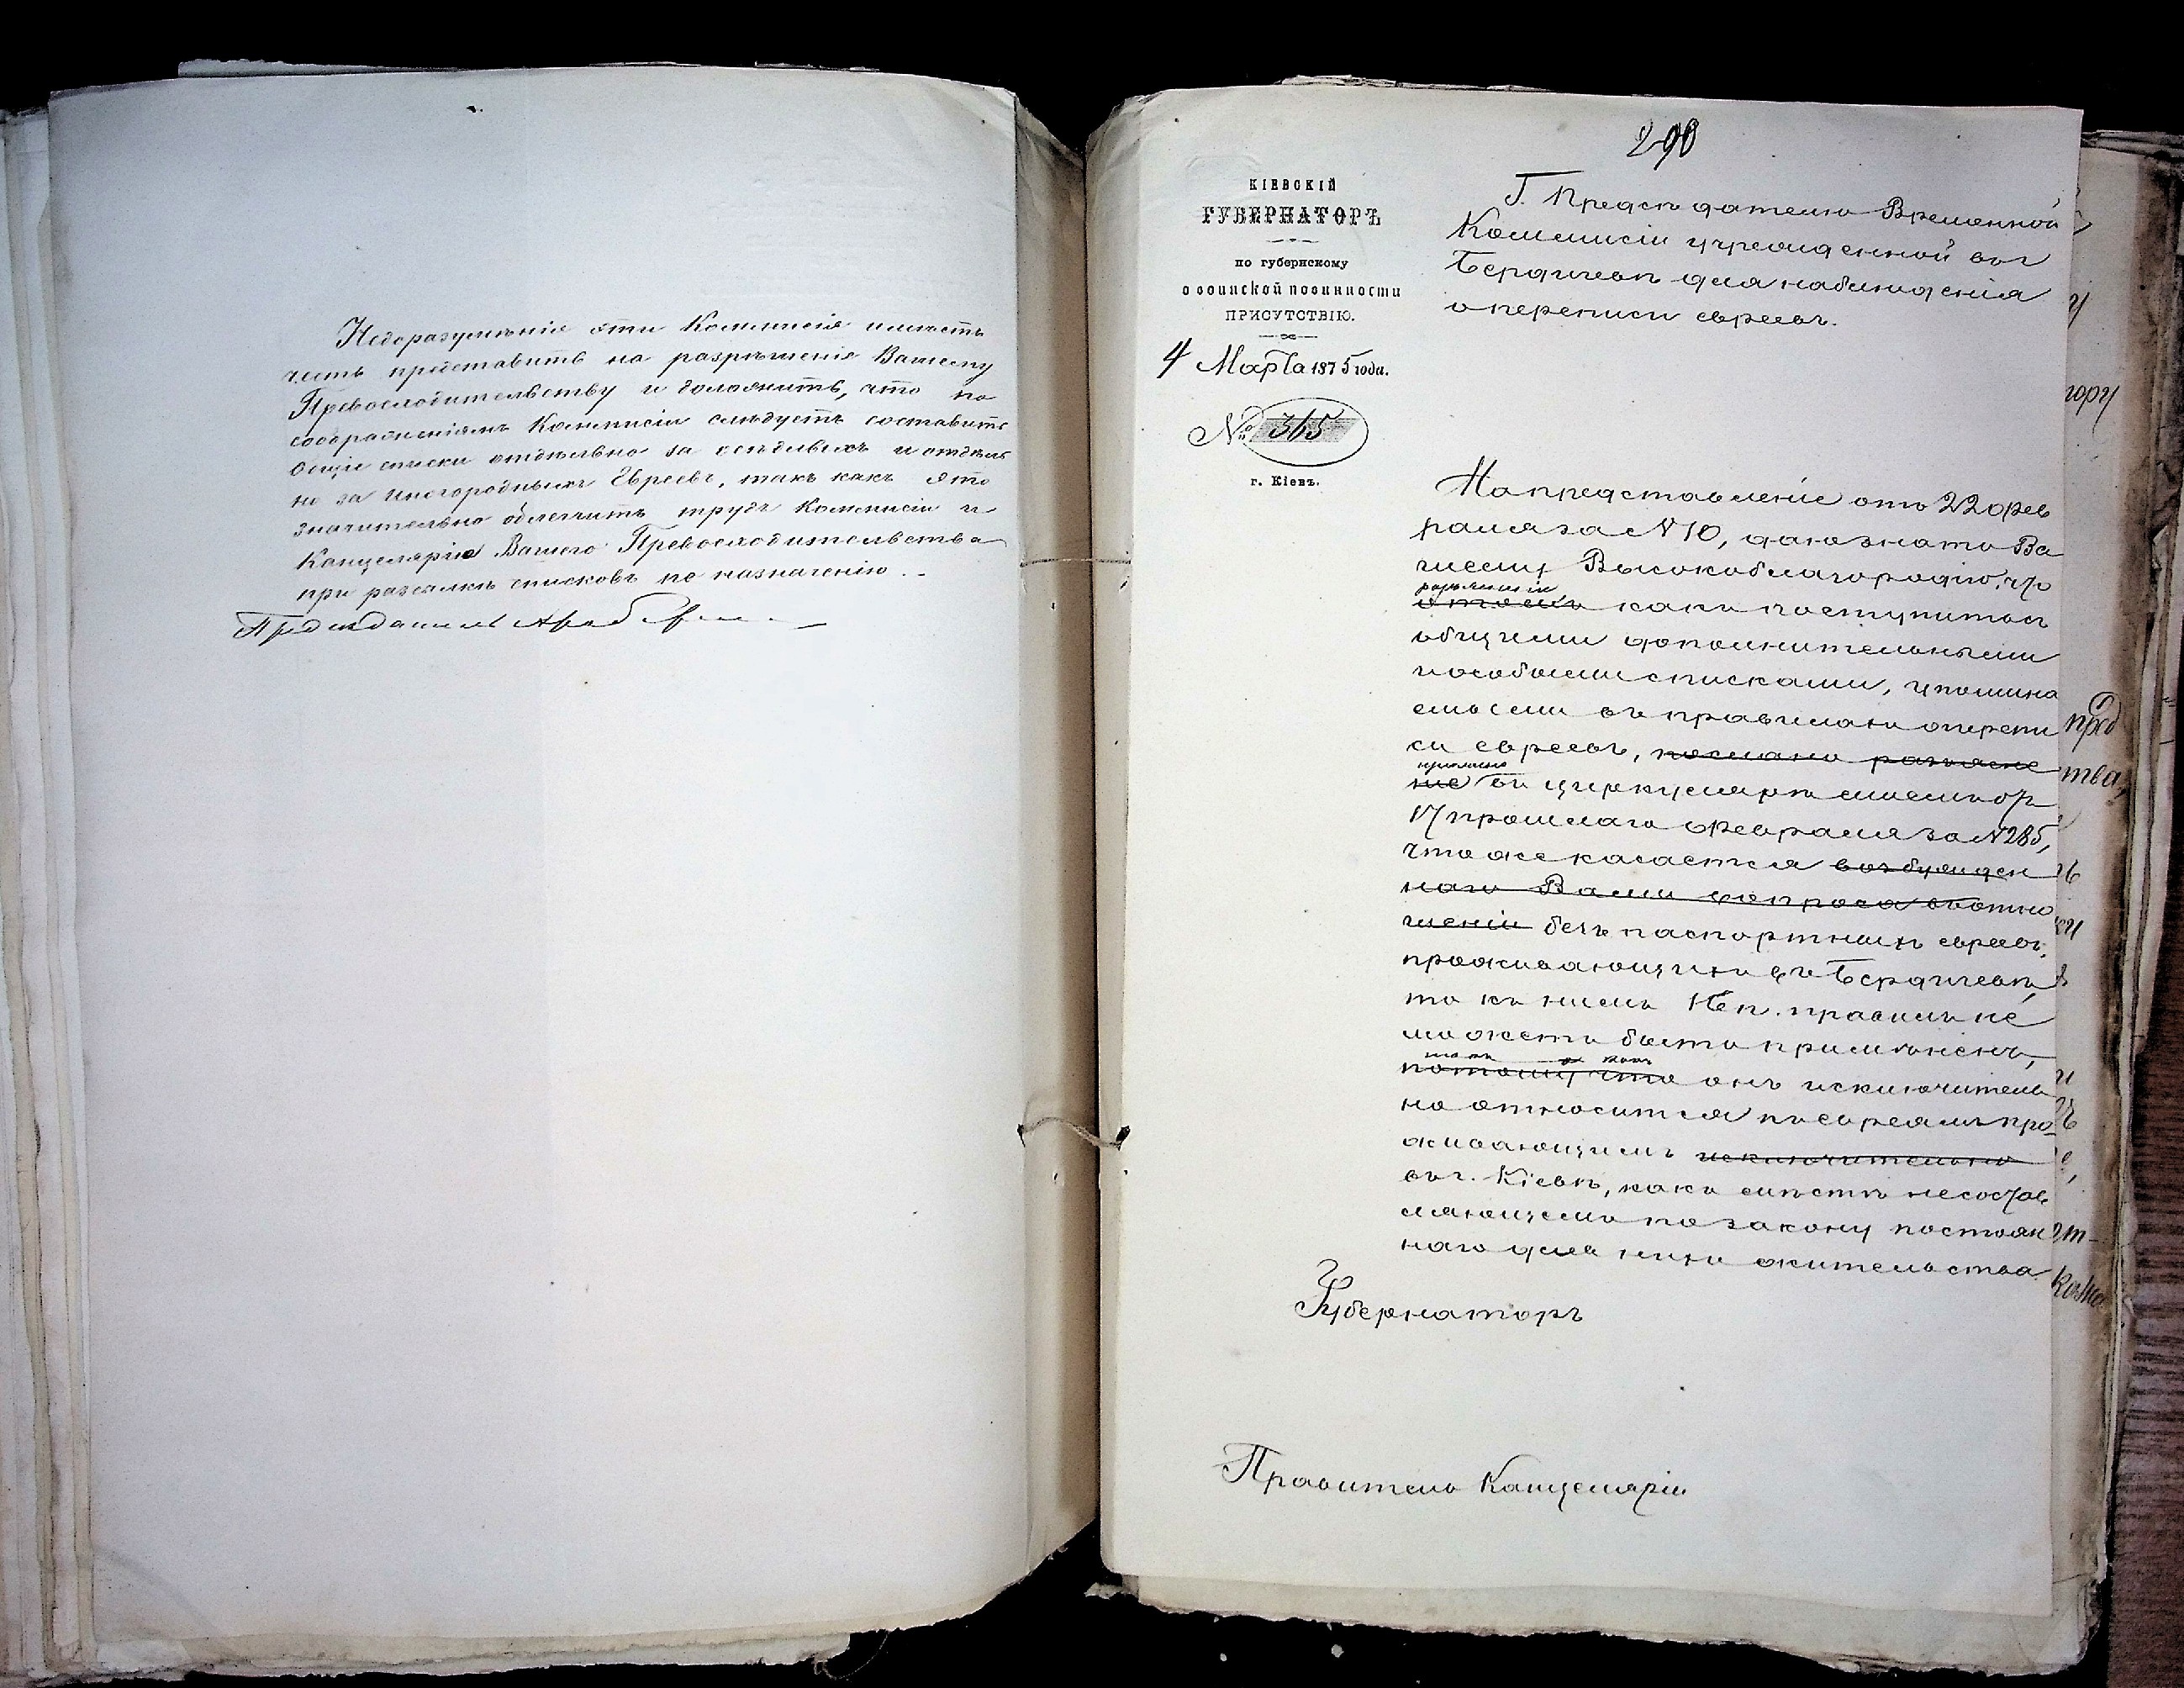 Недоразумѣнія эти Коммисія имѣетъ
честь представить на разрѣшеніе Вашему
Превосходительству и доложить, что по
соображеніямъ Коммисіи слѣдуетъ составить
общіе списки отдѣльно за осѣдлыхъ и отдѣль
но за иногородныхъ Евреевъ, такъ какъ это
значительно облегчитъ трудъ Коммисіи и
Канцелярію Вашего Превосходительства
при разсылкѣ списковъ по назначенію.
Предсѣдатель
290
КІЕВСКІЙ
ГУБЕРНАТОРЪ
по губернскому
о воинской повинности
ПРИСУТСТВІЮ.
4 Марта 1875 года.
№ 365
г. Кіевъ.
Г. Предсѣдателю Временной
Коммисіи учрежденной въ г
Бердичевѣ для наблюденія
о переписи евреевъ.
На представленіе отъ 22 фев
раля за № 10, даю знать Ва
шему Высокоблагородію, что
разъясненія
о томъ какъ поступить съ
общими дополнительными
и особыми списками, упомина
емыми въ правилахъ о перепи
си евреевъ, послано разъясне
ніе въ циркулярѣ моемъ отъ
17 прошлаго февраля за № 285,
что же касается возбужден
наго Вами вопроса въ отно
шеніи безпаспортныхъ евреевъ,
проживающихъ въ г Бердичевѣ,
то къ нимъ п. правилъ не
можетъ быть примѣненъ,
такъ какъ
потому что онъ исключитель
но относится къ евреямъ про
живающимъ исключительно
въ г. Кіевѣ, какъ мѣстѣ несостав
ляющемъ по закону постоян
наго для нихъ жительства
Губернаторъ
Правитель Канцеляріи
гору
пред
тва,